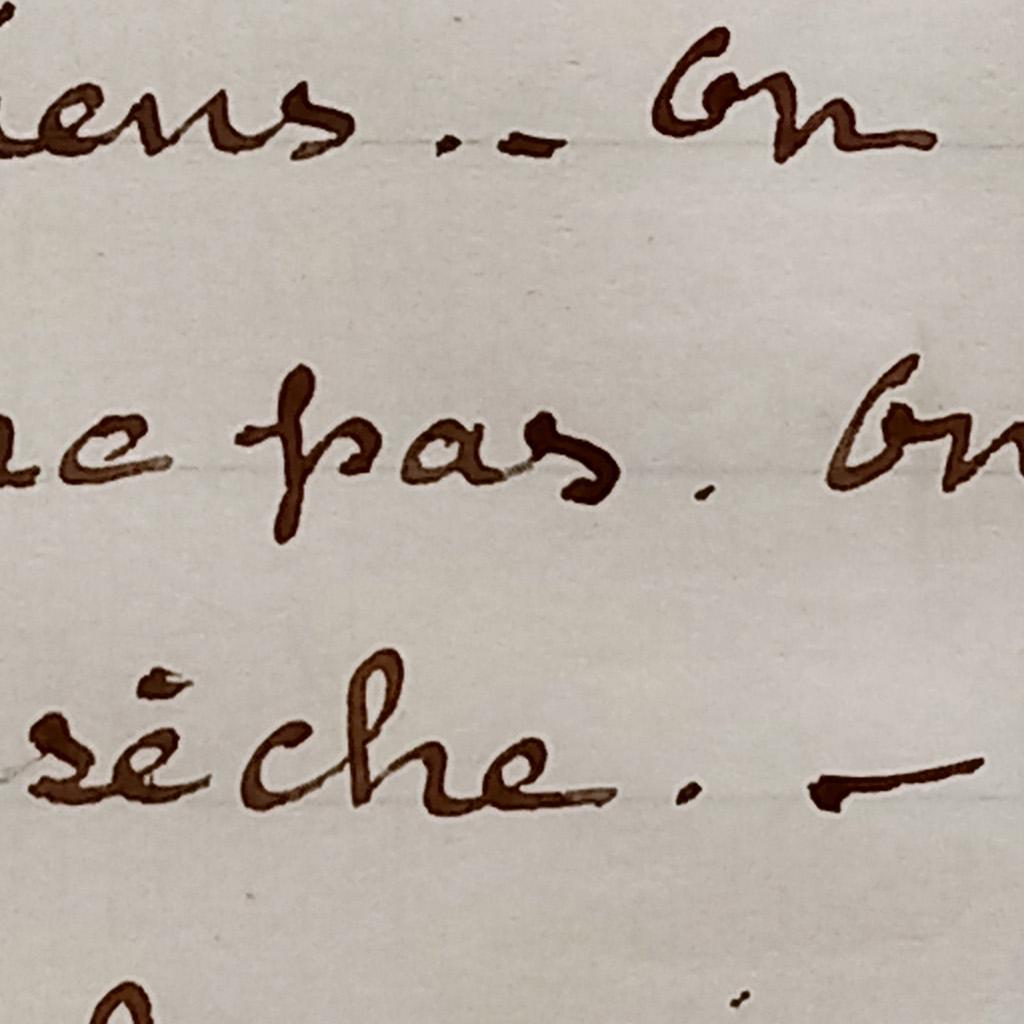 iens .- On
ne pas . On
sèche . -